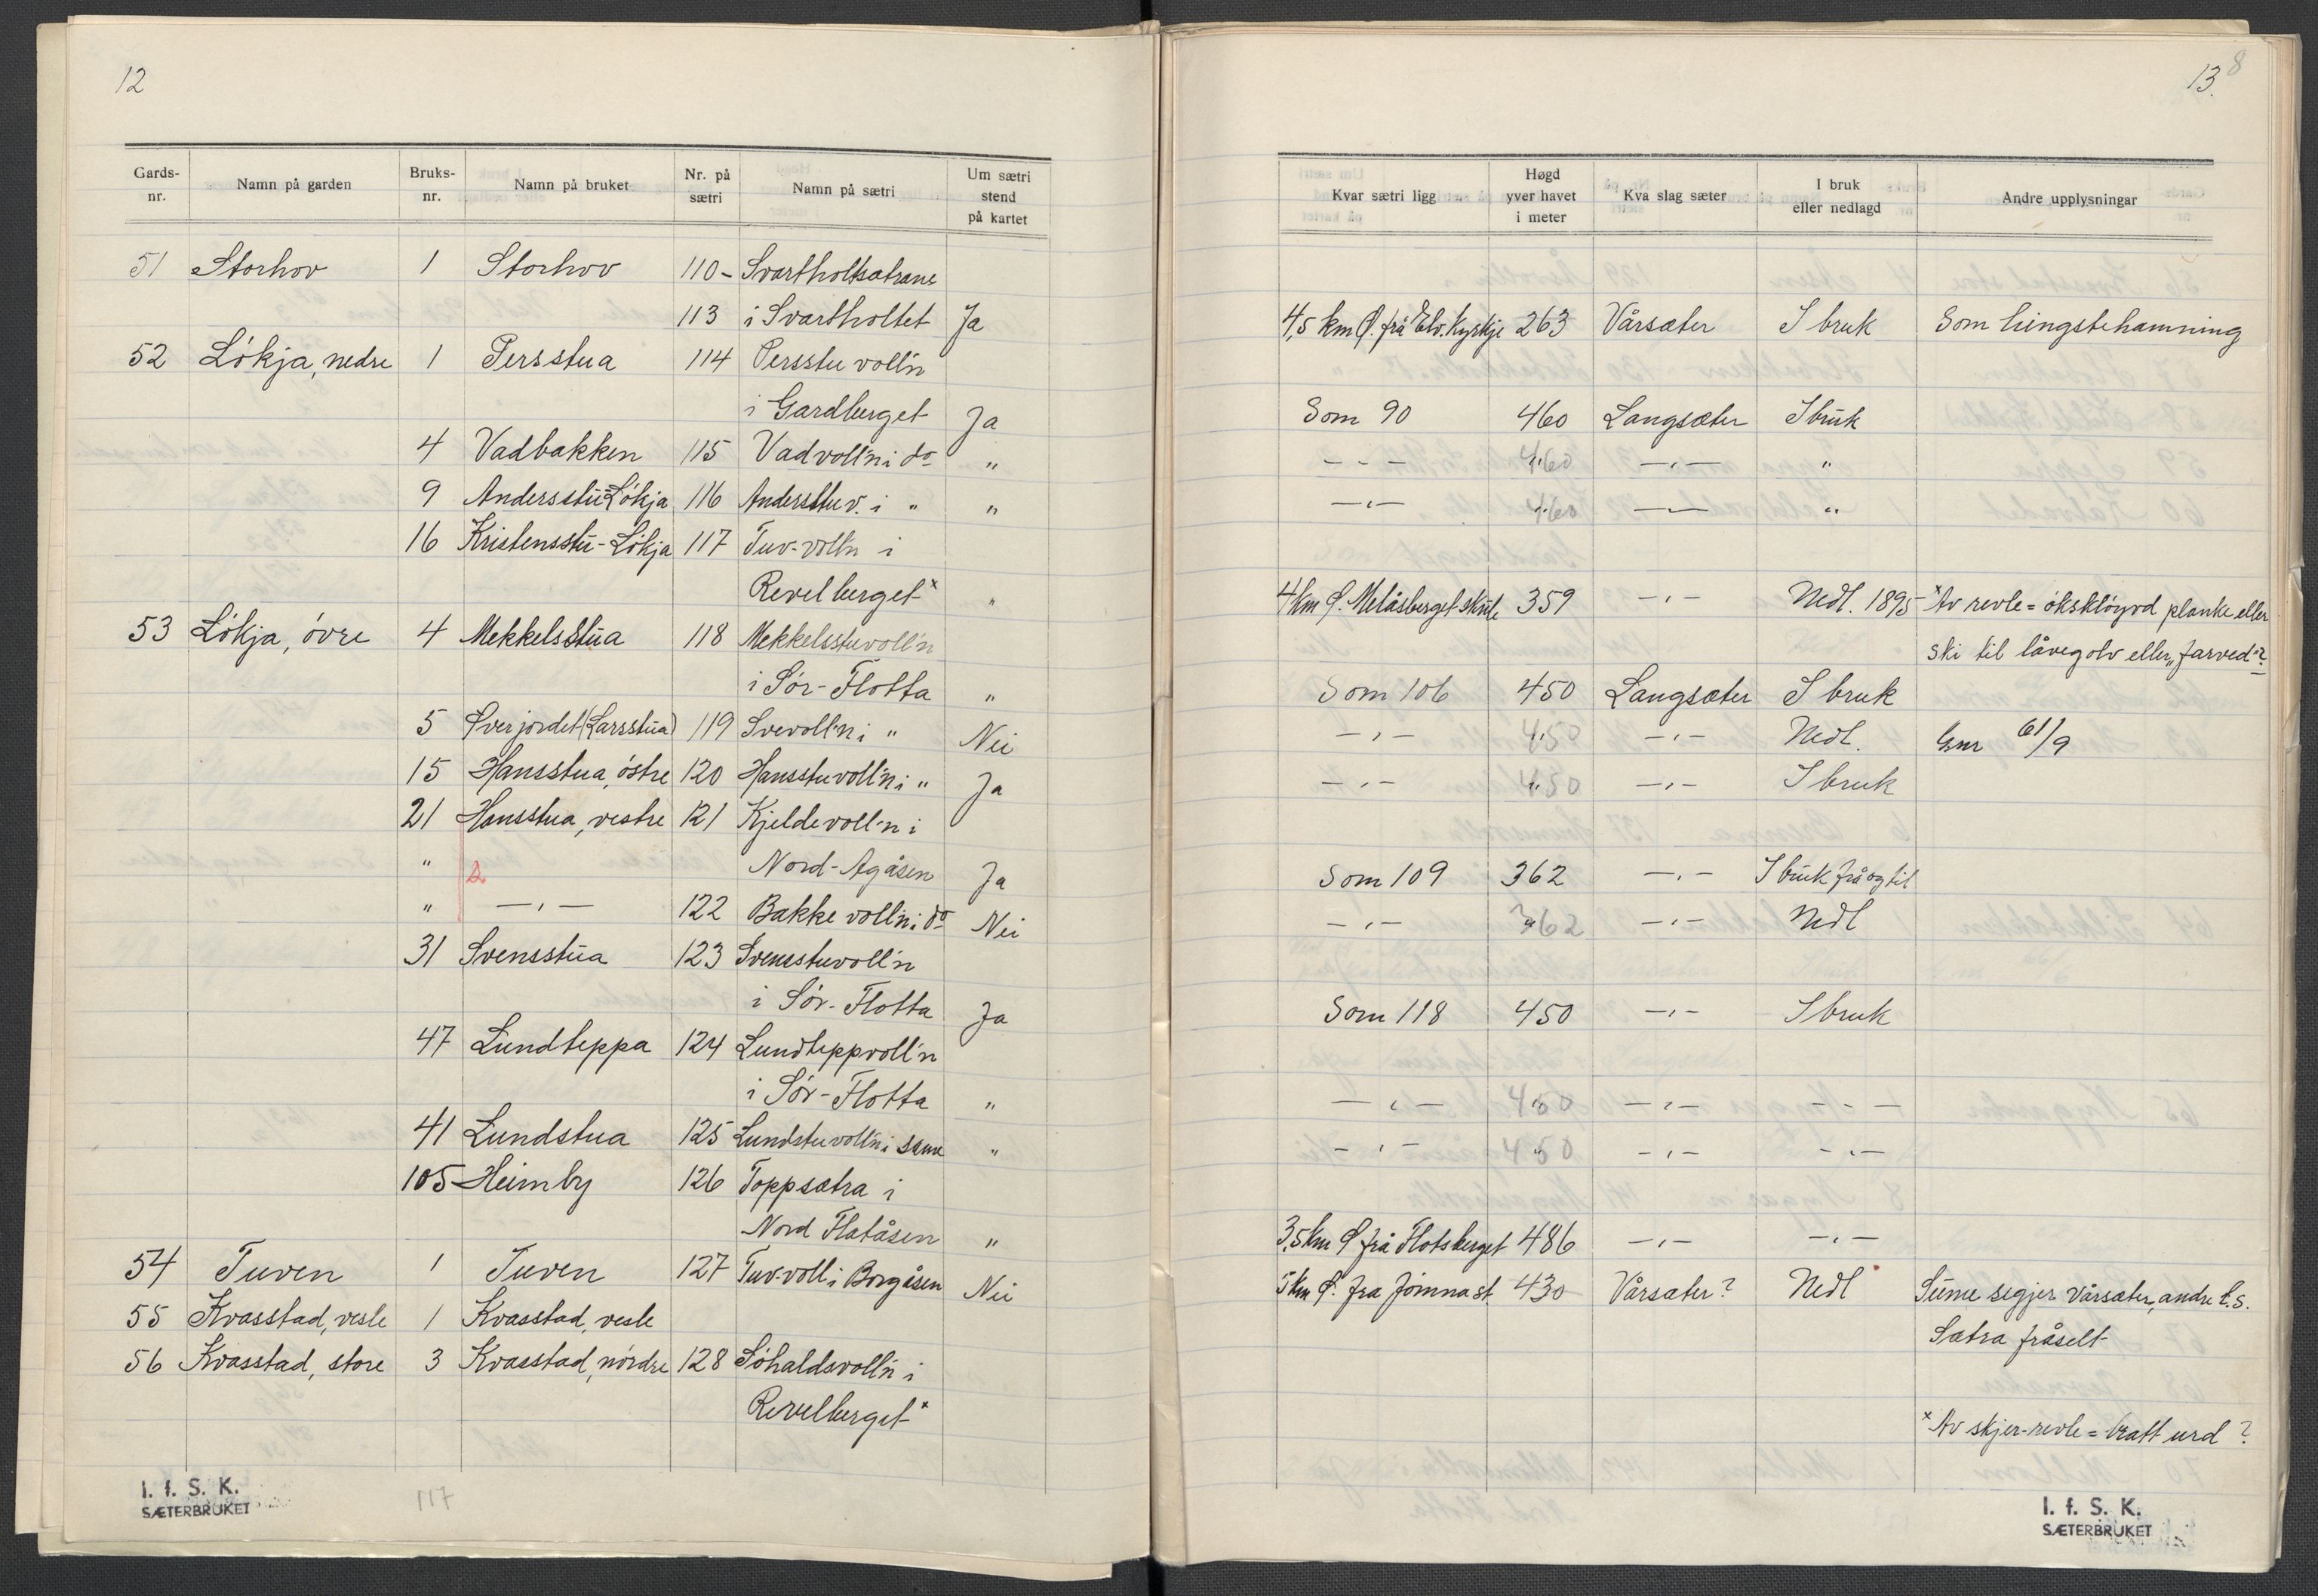 12
Gards-nr. Namn på garden Bruks-nr. Namn på bruket Nr. på sætri Namn på sætri Um sætri stend på kartet
51 Storhov 1 Storhov 110- Svartholtsætrane
113 i Svartholtet Ja
52 Lökja, nedre 1 Persstua 114 Persstuvoll'n
i Gardberget Ja
4 Vadbakken 115 Vadvoll'n i do „
9 Andersstu-Lökja 116 Andersstuv. i „ „
16 Kristensstu-Lökja 117 Tuv-voll'n i
Revelberget x „
53 Lökja, övre 4 Mekkelsstua 118 Mekkelsstuvoll'n
i Sör-Flotta „
5 Øverjordet (Larsstua) 119 Svevoll'n i „ Nei
15 Hansstua, östre 120 Hansstuvoll'n i „ Ja
21 Hansstua, vestre 121 Kjeldevoll'n i
„ Nord-Agåsen Ja
„ —„— 122 Bakkevoll'n i do Nei
31 Svensstua 123 Svensstuvoll'n
i Sör-Flotta Ja
47 Lundteppa 124 Lundteppvoll'n
i Sör-Flotta „
41 Lundstua 125 Lundstuvoll'n i same „
105 Heimby 126 Toppsætra i
Nord Flatåsen „
54 Tuven 1 Tuven 127 Tuv-voll i Borgåsen Nei
55 Kvasstad, vesle 1 Kvasstad, vesle
56 Kvasstad, store 3 Kvasstad, nördre 128 Söhaldsvoll'n i
Revelberget x
I. f. S. K.
SÆTERBRUKET
117
13. 8
Kvar sætri ligg Høgd yver havet i meter Kva slag sæter I bruk eller nedlagd Andre upplysningar
4,5 km Ø. frå Elv. Kyrkje 263 Vårsæter I bruk Som hingstehamning
Som 90 460 Langsæter I bruk
— - — 460 —„— „
—„— 460 —„— „
4 km Ø. Melåsberget skule 359 —„— Nedl. 1895 x Av revle = öksklöyvd planke eller
ski til låvegolv eller „farved"?
Som 106 450 Langsæter I bruk
—„— 450 —„— Nedl. Gnr 61/9
—„— 450 —„— I bruk
Som 109 362 —„— I bruk frå og til
—„— 362 —„— Nedl
Som 118 450 —„— I bruk
—„— 450 —„— —„—
—„— 450 —„— —„—
3,5 km Ø frå Flotsberget 486 —„— —„—
5 km Ø. fra Jömna st. 430 Vårsæter? Nedl Sume segjer vårsæter, andre l.s.
Sætra fråselt
x Av skjer-revle = bratt urd?
I. f. S. K.
SÆTERBRUKET